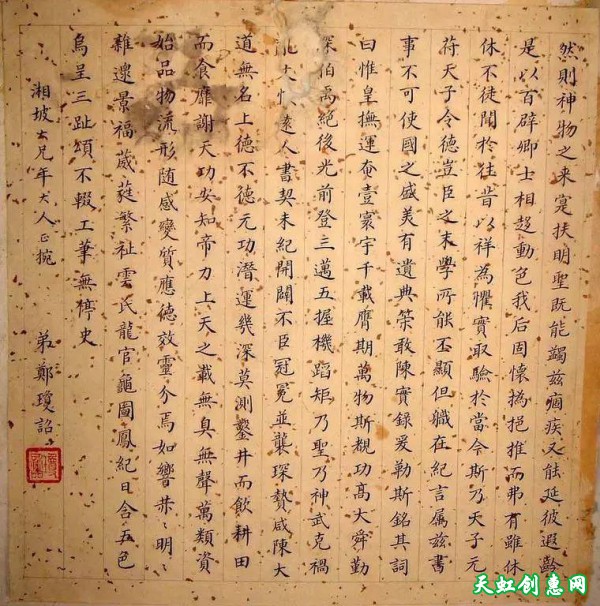 然則神物之来寔扶明聖既能蠲兹痼疾又能延彼遐齡
是以百辟卿士相趍動色我后固懷撝挹推而弗有雖休
休不徒聞於往昔以祥為懼實取驗於當今斯乃天子元
苻天子令德豈臣之末學所能丕顯但職在紀言屬兹書
事不可使國之盛美有遺典䇿敢陳實錄爰勒斯銘其詞
曰惟皇撫運奄壹寰宇千載膺期萬物斯覩功髙大舜勤
深伯禹絕後光前登三邁五握機蹈矩乃聖乃神武克禍
遠人書契未紀開闢不臣冠冕並襲琛贄咸陳大
道無名上德不德元功潛運幾深莫測鑿井而飲耕田
而食靡謝天功安知帝力上天之載無臭無聲萬類資
始品物流形随感變質應德效靈介焉如響赫赫明明
雜遝景福葳蕤繁祉雲氏龍官龜圖鳳紀日含五色
烏呈三趾頌不輟工筆無停史
湘坡大兄年大人正捥
弟鄭瓊詔
天虹创惠网